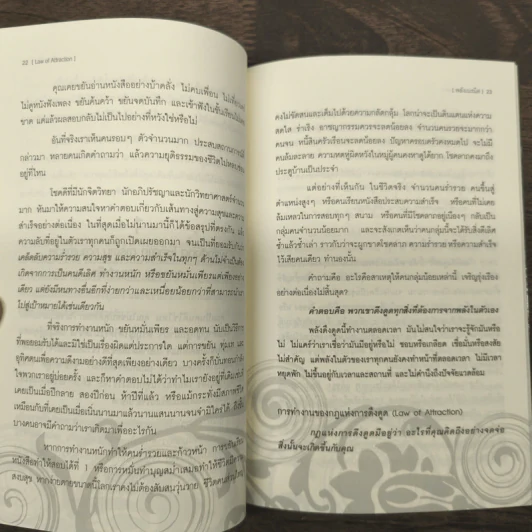 22 [ Law of Attraction ]
คุณเคยขยันอ่านหนังสืออย่างบ้าคลั่ง ไม่คบเพื่อน ไม่เที่ยว
ไม่ดูหนังฟังเพลง ขยันค้นคว้า ขยันจดบันทึก และเข้าฟังในชั้นเรียนไม่
ขาด แต่แล้วผลสอบกลับไม่เป็นไปอย่างที่หวังใช่หรือไม่
อันที่จริงเราเห็นคนรอบๆ ตัวจำนวนมาก ประสบสถานการณ์
กล่าวมา หลายคนเกิดคำถามว่า แล้วความยุติธรรมของชีวิต
อยู่ที่ไหน
โชคดีที่มีนักจิตวิทยา นักอภิปรัชญาและนักวิทยาศาสตร์จำนวน
มาก หันมาให้ความสนใจหาคำตอบเกี่ยวกับเส้นทางสู่ความสุขและความ
สำเร็จอย่างต่อเนื่อง ในที่สุดเมื่อไม่นานมานี้ก็ได้ข้อสรุปที่ตรงกัน
ความลับที่อยู่ในตัวเราทุกคนก็ถูกเปิดเผยออกมา จนเป็นที่ยอมรับกัน
เคล็ดลับความร่ำรวย ความสุข และความสำเร็จในทุกๆ ด้านไม่จำเป็นต้อง
เกิดจากการเป็นคนดีเลิศ ทำงานหนัก หรือขยันหมั่นเพียรแต่เพียงอย่าง
เดียว แต่ยังมีหนทางอื่นอีกที่ง่ายกว่าและเหนื่อยน้อยกว่าที่สามารถนำ
ไปสู่เป้าหมายได้เช่นเดียวกัน
ที่จริงการทำงานหนัก ขยันหมั่นเพียร และอดทน นับเป็นวิธีการ
ที่พอยอมรับได้และมิใช่เป็นเรื่องผิดแต่ประการใด แต่การขยัน ทุ่มเท และ
อุทิศตนเพื่อความดีงามอย่างดีที่สุดเพียงอย่างเดียว บางครั้งก็บั่นทอนกำลัง
ใจพวกเราอยู่บ่อยครั้ง และก็หาคำตอบไม่ได้ว่าทำไมเรายังอยู่ที่เดิม
เคยเป็นเมื่อปีกลาย สองปีก่อน ห้าปีที่แล้ว หรือแม้กระทั่งมีสภาพ
เหมือนกับที่เคยเป็นเมื่อเนิ่นนานมาแล้วนานแสนนานจนจำมิใคร่ได้
บางคนอาจมีคำถามว่าเราเกิดมาเพื่ออะไรกัน
หากการทำงานหนักทำให้คนร่ำรวยและก้าวหน้า การขยัน
หนังสือทำให้สอบได้ที่ 1 หรือการหมั่นทำบุญสม่ำเสมอทำให้ชีวิตมีความ
สงบสุข หากง่ายดายขนาดนี้โลกเราคงไม่ต้องสับสนวุ่นวาย ชีวิตคนส่วนใหญ่
[ พลังเนรมิต ] 23
คงไม่ขัดสนและเต็มไปด้วยความกลัดกลุ้ม โลกน่าจะเป็นดินแดนแห่งความ
สดใส ร่าเริง อาชญากรรมควรจะลดน้อยลง จำนวนคนรวยจะมากกว่า
คนจน หนี้สินครัวเรือนจะลดน้อยลง ปัญหาครอบครัวคงหมดไป จะไม่มี
คนล้มละลาย ความหดหู่ผิดหวังในหมู่ผู้คนคงหาดูได้ยาก โชคลาภคงมาถึง
ประตูบ้านเป็นประจำ
แต่อย่างที่เห็นกัน ในชีวิตจริง จำนวนคนร่ำรวย คนขึ้นสู่
ตำแหน่งสูงๆ หรือคนเรียนหนังสือประสบความสำเร็จ หรือคนที่ไม่เคย
ล้มเหลวในการสอบทุกๆ สนาม หรือคนที่มีโชคลาภอยู่เนืองๆ กลับเป็น
กลุ่มคนจำนวนน้อยมาก และจะสังเกตเห็นว่าคนกลุ่มนี้จะได้รับสิ่งดีเลิศ
ซ้ำแล้วซ้ำเล่า ราวกับว่าจะผูกขาดโชคลาภ ความร่ำรวย หรือความสำเร็จ
ไว้เสียคนเดียว ทำนองนั้น
คำถามคือ อะไรคือสาเหตุให้คนกลุ่มน้อยเหล่านี้ เจริญรุ่งเรือง
อย่างต่อเนื่องไม่สิ้นสุด?
คำตอบคือ พวกเขาดึงดูดทุกสิ่งที่ต้องการจากพลังในตัวเอง
พลังดึงดูดนี้ทำงานตลอดเวลา มันไม่สนใจว่าเราจะรู้จักมันหรือ
ไม่ ไม่แคร์ว่าเราเชื่อว่ามันมีอยู่หรือไม่ ชอบหรือเกลียด เชื่อมั่นหรือสงสัย
ไม่สำคัญ แต่พลังในตัวของเราทุกคนยังคงทำหน้าที่ตลอดเวลา ไม่มีเวลา
หยุดพัก ไม่ขึ้นอยู่กับเวลาและสถานที่ และไม่คำนึงถึงปัจจัยแวดล้อม
การทำงานของกฎแห่งการดึงดูด (Law of Attraction)
กฎแห่งการดึงดูดมีอยู่ว่า อะไรที่คุณคิดถึงอย่างจดจ่อ
สิ่งนั้นจะเกิดขึ้นกับคุณ